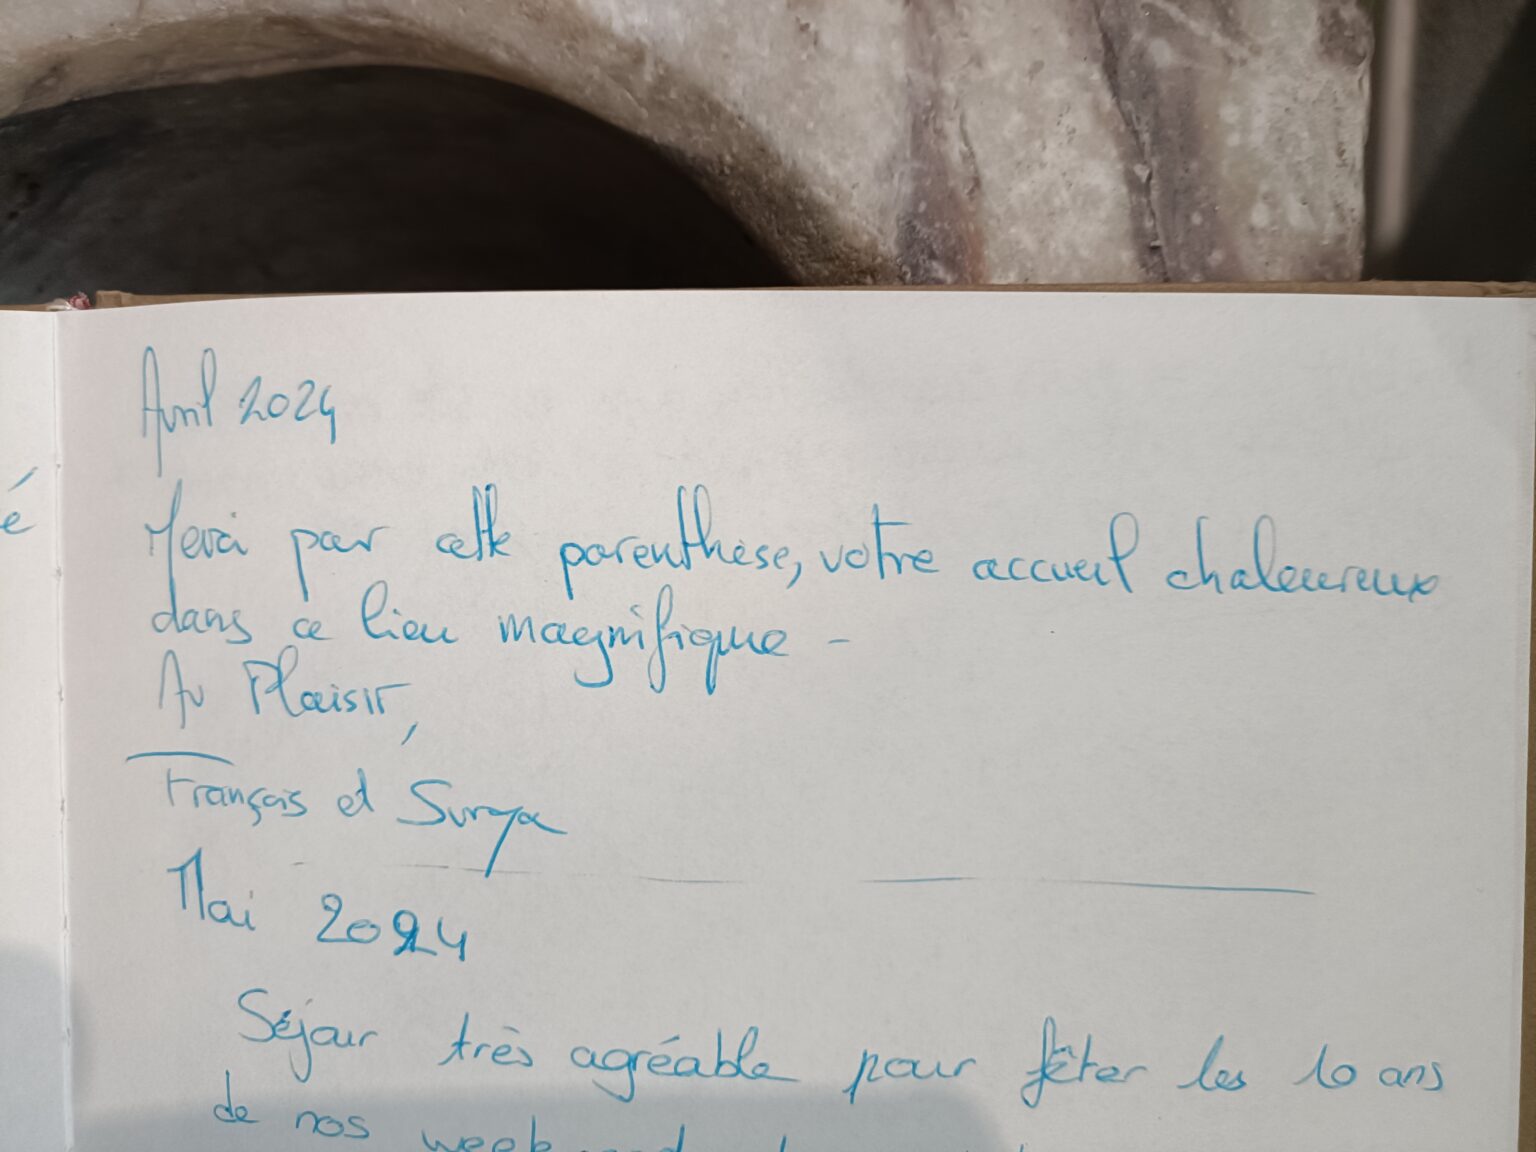 é
Avril 2024
Merci pour cette parenthèse, votre accueil chaleureux
dans ce lieu magnifique -
Au Plaisir,
François et Surya
Mai 2024
Séjour très agréable pour fêter les 10 ans
de nos